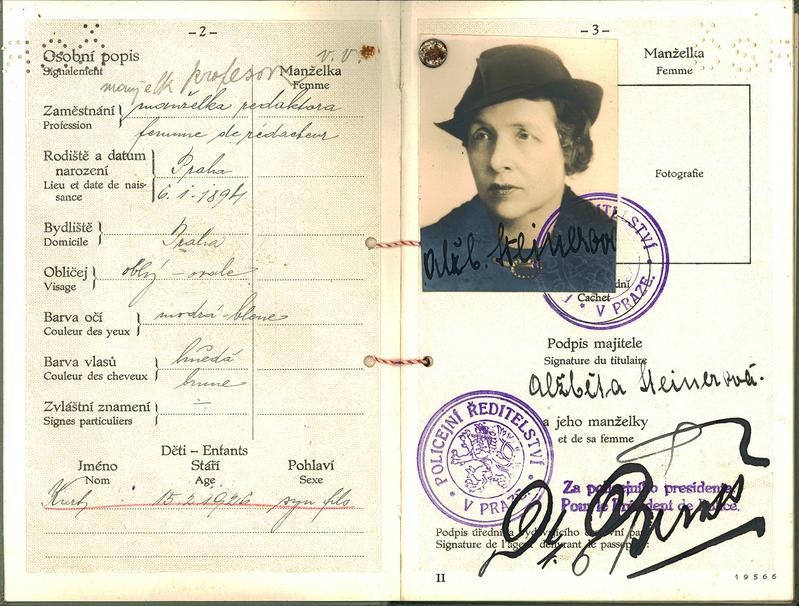 - 2 -
Osobní popis
Signalement
v. v.
manžel profesor
Manželka
Femme
Zaměstnání
Profession
manželka redaktora
femme de rédacteur
Rodiště a datum
narození
Lieu et date de nais-
sance
Praha
6. 1. 1894
Bydliště
Domicile
Praha
Obličej
Visage
oblý – ovale
Barva očí
Couleur des yeux
modrá - bleue
Barva vlasů
Couleur des cheveux
hnědá
brune
Zvláštní znamení
Signes particuliers
Děti – Enfants
Jméno Stáří Pohlaví
Nom Age Sexe
Kurt 15. 2. 1926 syn fils
- 3 -
Manželka
Femme
Fotografie
Alžb. Steinerová
V PRAZE.
Cachet
Podpis majitele
Signature du titulaire
Alžběta Steinerová.
a jeho manželky
et de sa femme
POLICEJNÍ ŘEDITELSTVÍ
V PRAZE.
Za policejního presidenta
Pour le Président de Police.
Podpis úředníka
Signature de l'agent délivrant le passeport:
II
19566